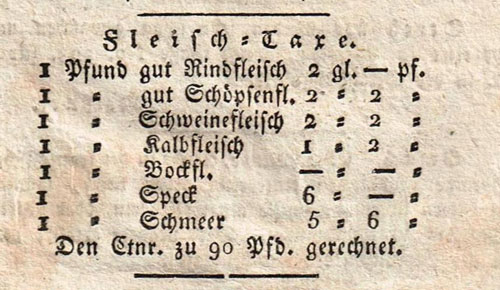 Fleisch=Taxe.
1 Pfund gut Rindfleisch 2 gl. — pf.
1 = gut Schöpsenfl. 2 = 2 =
1 = Schweinefleisch 2 = 2 =
1 = Kalbfleisch 1 = 2 =
1 = Bockfl. — = — =
1 = Speck 6 = — =
1 = Schmeer 5 = 6 =
Den Ctnr. zu 90 Pfd. gerechnet.